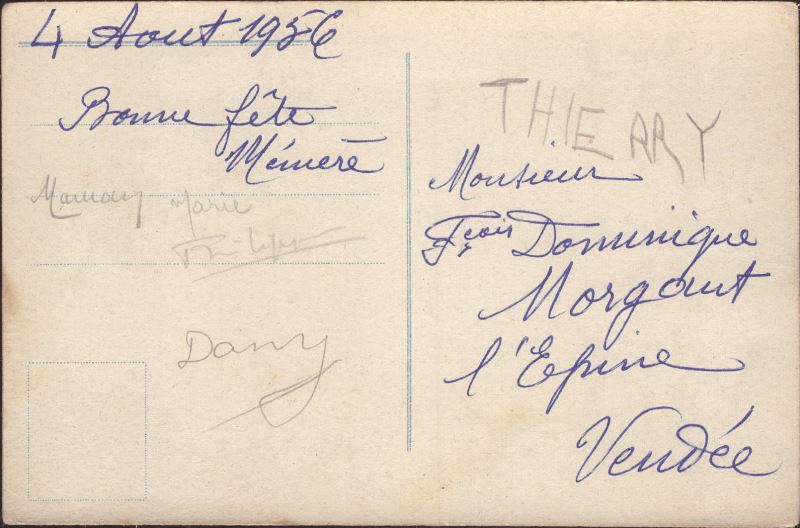 4 Aout 1956
Bonne fête
Mémère
Maman Marie
Philippe
Dany
THIERRY
Monsieur
Fçois Dominique
Morgaut
l'Epine
Vendée